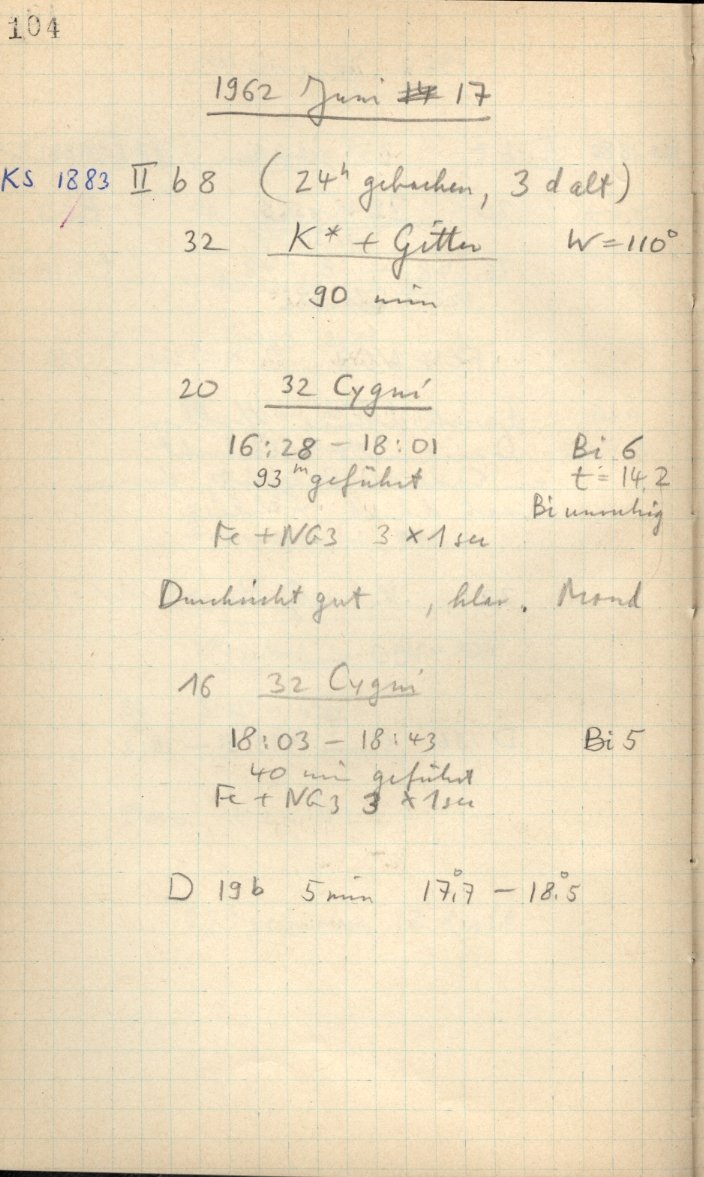 104
1962 Juni 17
KS 1883 II b 8 (24h gebacken, 3 d alt)
32 K* + Gitter W = 110°
90 min
20 32 Cygni
16:28 – 18:01 Bi 6
93m geführt t = 14.2
Bi unruhig
Fe + NG3 3 × 1 sec
Durchsicht gut , klar. Mond
16 32 Cygni
18:03 – 18:43 Bi 5
40 min geführt
Fe + NG3 3 × 1 sec
D 19b 5 min 17.°7 – 18.°5